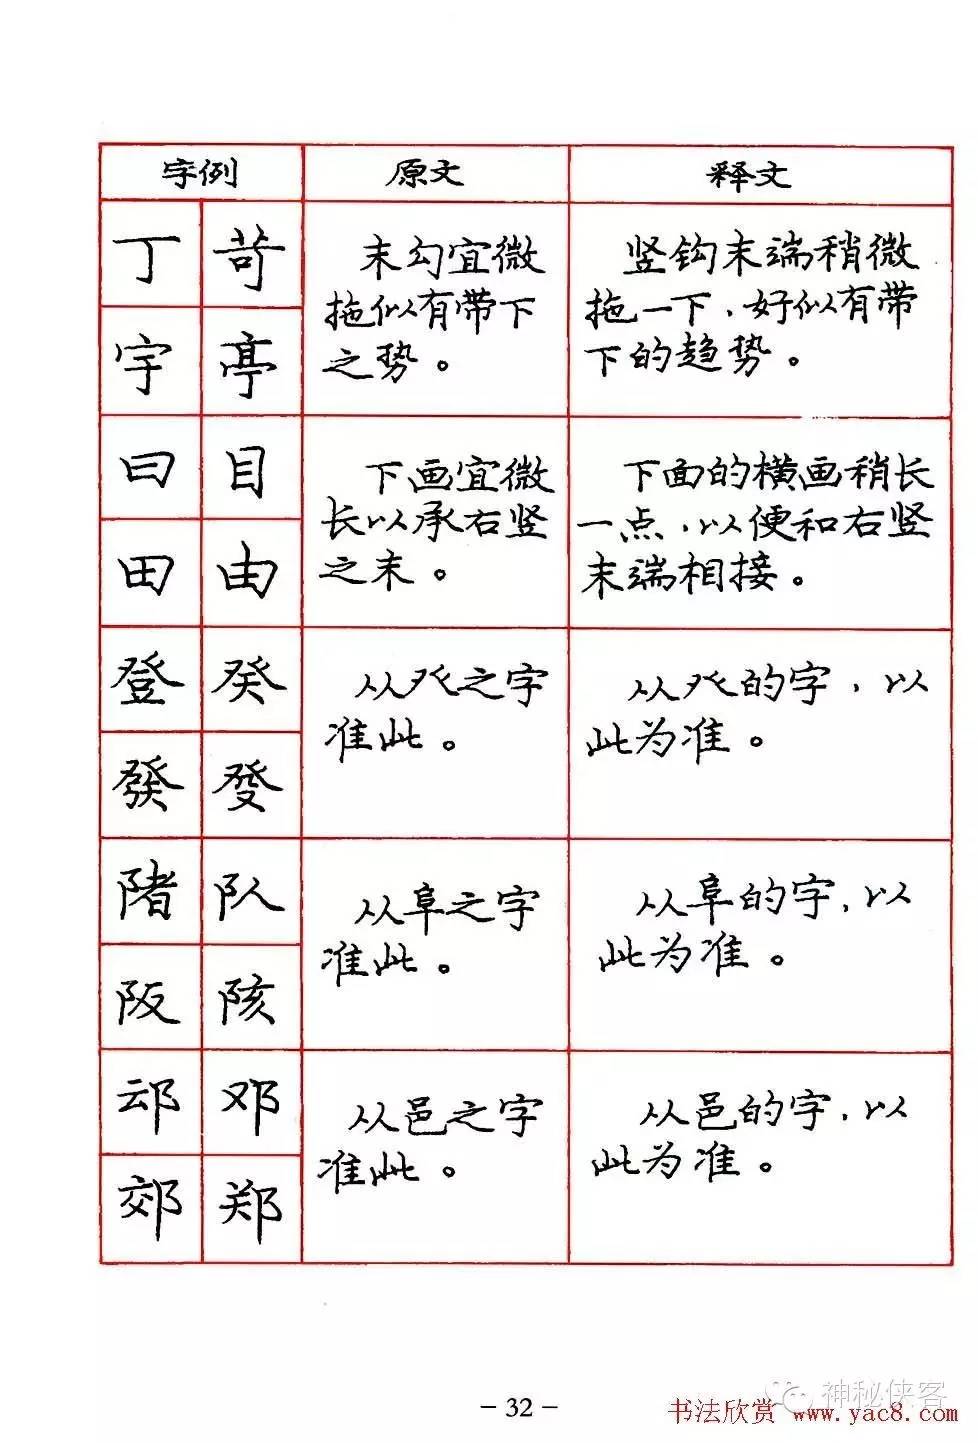 字例 原文 释文
丁 苛 末勾宜微 竖钩末端稍微
拖似有带下 拖一下，好似有带
宇 亭 之势。 下的趋势。
曰 目 下画宜微 下面的横画稍长
长以承右竖 一点，以便和右竖
田 由 之末。 末端相接。
登 癸 从癶之字 从癶的字，以
准此。 此为准。
發 癹
陼 队 从阜之字 从阜的字，以
准此。 此为准。
阪 陔
邧 邓 从邑之字 从邑的字，以
准此。 此为准。
郊 郑
- 32 -
神秘侠客
书法欣赏 www.yac8.com